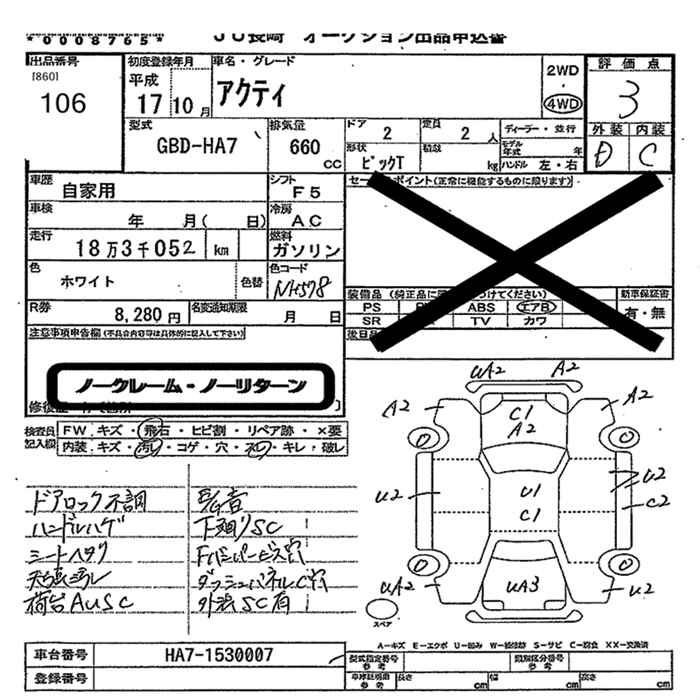 *0008765* JU長崎 オークション出品申込書
出品番号
[860]
106
初度登録年月
平成
17年10月
車名・グレード
アクティ
2WD
4WD
評価点
3
外装 内装
D C
型式
GBD-HA7
排気量
660
CC
ドア
2
定員
2 人
形状
ピックT
積載
kg
ディーラー・並行
モデル年式 年
ハンドル 左・右
車歴
自家用
シフト
F5
車検
年 月( 日)
冷房
AC
走行
18万3千052 km
燃料
ガソリン
色
ホワイト
色替
色コード
NH578
R券
8,280円
名変通知期限
月 日
セールスポイント(正常に機能するものに限ります)
装備品 (純正品に
つけてください)
PS ABS エアB
SR TV カワ
新車保証書
有・無
後日品
注意事項申告欄(不具合内容等は具体的に記入して下さい)
ノークレーム・ノーリターン
修復歴
検査員記入欄
FW キズ・飛石・ヒビ割・リペア跡・×要
内装 キズ・汚れ・コゲ・穴・ネジ・キレ・破レ
ドアロック不調
ハンドルハゲ
シートヘタリ
荷台AUSC
下廻りSC
ダッシュパネルC穴
外装SC有
UA2 A2
A2 C1 A2 A2
U2 U1 C1 U2 C2
UA2 UA3 U2
スペア
A-キズ E-エクボ U-凹み W-補修跡 S-サビ C-腐食 XX-交換済
車台番号
HA7-1530007
登録番号
型式指定番号
参考
類別区分番号
参考
車検証明書
参考
長さ
cm
幅
cm
高さ
cm